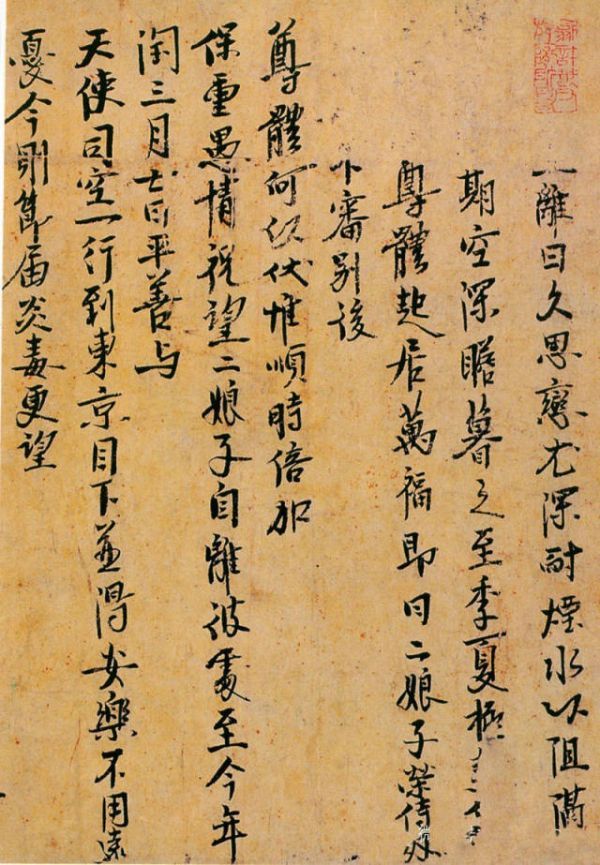 一離日久思戀尤深耐煙水以阻隔
期空深瞻暮之至季夏極
尊體起居萬福即日二娘子榮侍
不審別後
尊體何似伏惟順時倍加
保重愚情祝望二娘子自離彼處至今年
閏三月七日平善与
天使司空一行到東京目下並得安樂不用遠
憂今則節届炎毒更望